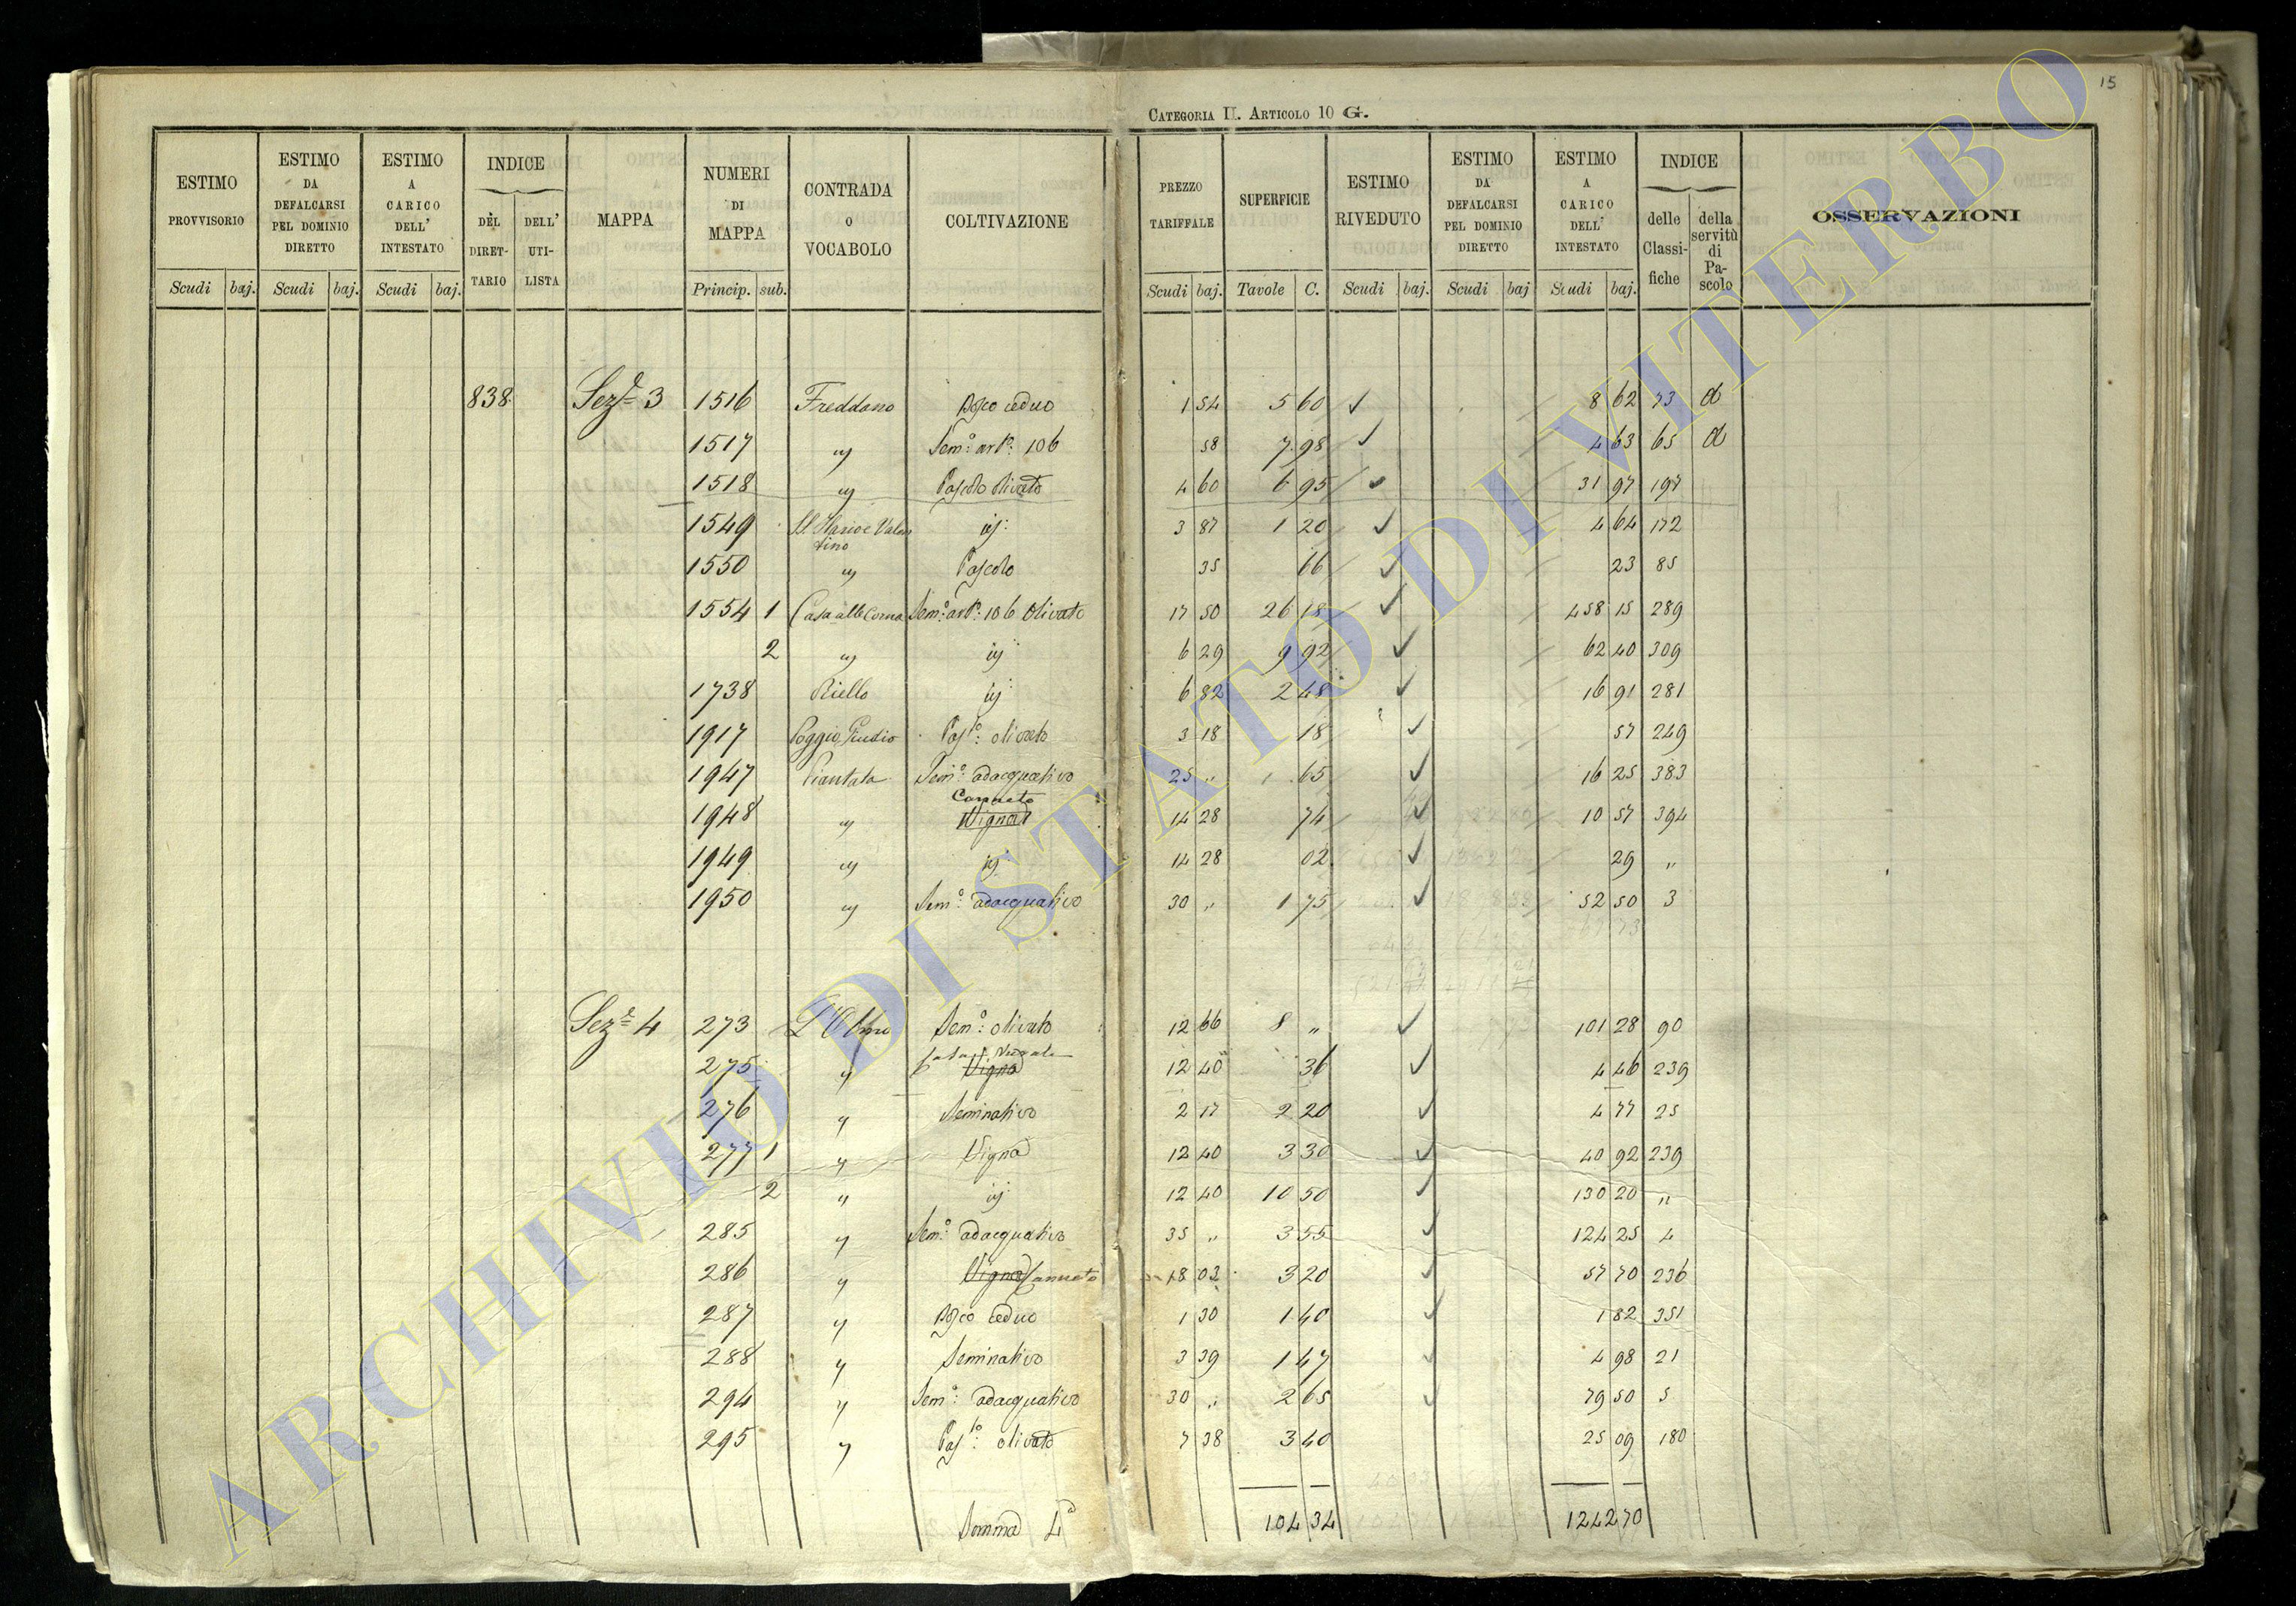 15
CATEGORIA II. ARTICOLO 10 G.
ESTIMO PROVVISORIO Scudi baj. ESTIMO DA DEFALCARSI PEL DOMINIO DIRETTO Scudi baj. ESTIMO A CARICO DELL' INTESTATO Scudi baj. INDICE DEL DIRET- TARIO DELL' UTI- LISTA MAPPA NUMERI DI MAPPA Princip. sub. CONTRADA O VOCABOLO COLTIVAZIONE PREZZO TARIFFALE Scudi baj. SUPERFICIE Tavole C. ESTIMO RIVEDUTO Scudi baj. ESTIMO DA DEFALCARSI PEL DOMINIO DIRETTO Scudi baj ESTIMO A CARICO DELL' INTESTATO Scudi baj. INDICE delle Classi- fiche della servitù di Pa- scolo OSSERVAZIONI
838 Sez.e 3 1516 Freddano Bosco ceduo 1 54 5 60 8 62 73 d
1517 " Sem.o art.o 106 58 7 98 4 63 65 d
1518 " Pascolo olivato 4 60 6 95 31 97 197
1549 SS. Mario e Valen tino id: 3 87 1 20 4 64 172
1550 " Pascolo 35 66 23 85
1554 1 Casa alle Corna Sem.o art.o 106 Olivato 17 50 26 18 458 15 289
2 " id: 6 29 9 92 62 40 309
1738 Riello id: 6 82 2 48 16 91 281
1917 Poggio Giudio Pas.lo olivato 3 18 18 57 249
1947 Piantata Sem.o adacquativo 25 " 65 16 25 383
1948 " Canneto Vigna 14 28 74 10 57 394
1949 " id: 14 28 02 29 "
1950 " Sem.o adacquativo 30 " 1 75 52 50 3
Sez.e 4 273 L'Olmo Sem.o olivato 12 66 8 " 101 28 90
275 " Vigna 12 40 36 4 46 239
276 " Seminativo 2 17 2 20 4 77 25
277 1 " Vigna 12 40 3 30 40 92 239
2 " id: 12 40 10 50 130 20 "
285 " Sem.o adacquativo 35 " 3 55 124 25 4
286 " Vigna Canneto 18 03 3 20 57 70 236
287 " Bosco ceduo 1 30 1 40 1 82 351
288 " Seminativo 3 39 1 47 4 98 21
294 " Sem.o adacquativo 30 " 2 65 79 50 5
295 " Pas.lo olivato 7 38 3 40 25 09 180
Somma L.a 104 34 1242 70
ARCHIVIO DI STATO DI VITERBO